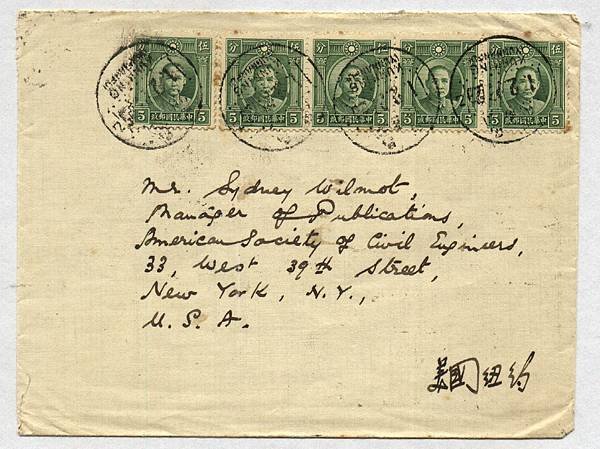 伍分 伍分 伍分 伍分 伍分
5 5 5 5 5 5 5 5 5 5
中華民國郵政 中華民國郵政 中華民國郵政 中華民國郵政 中華民國郵政
Mr. Sydney Wilmot,
Manager of Publications,
American Society of Civil Engineers,
33, West 39th Street,
New York, N.Y.,
U. S. A.
美國紐約